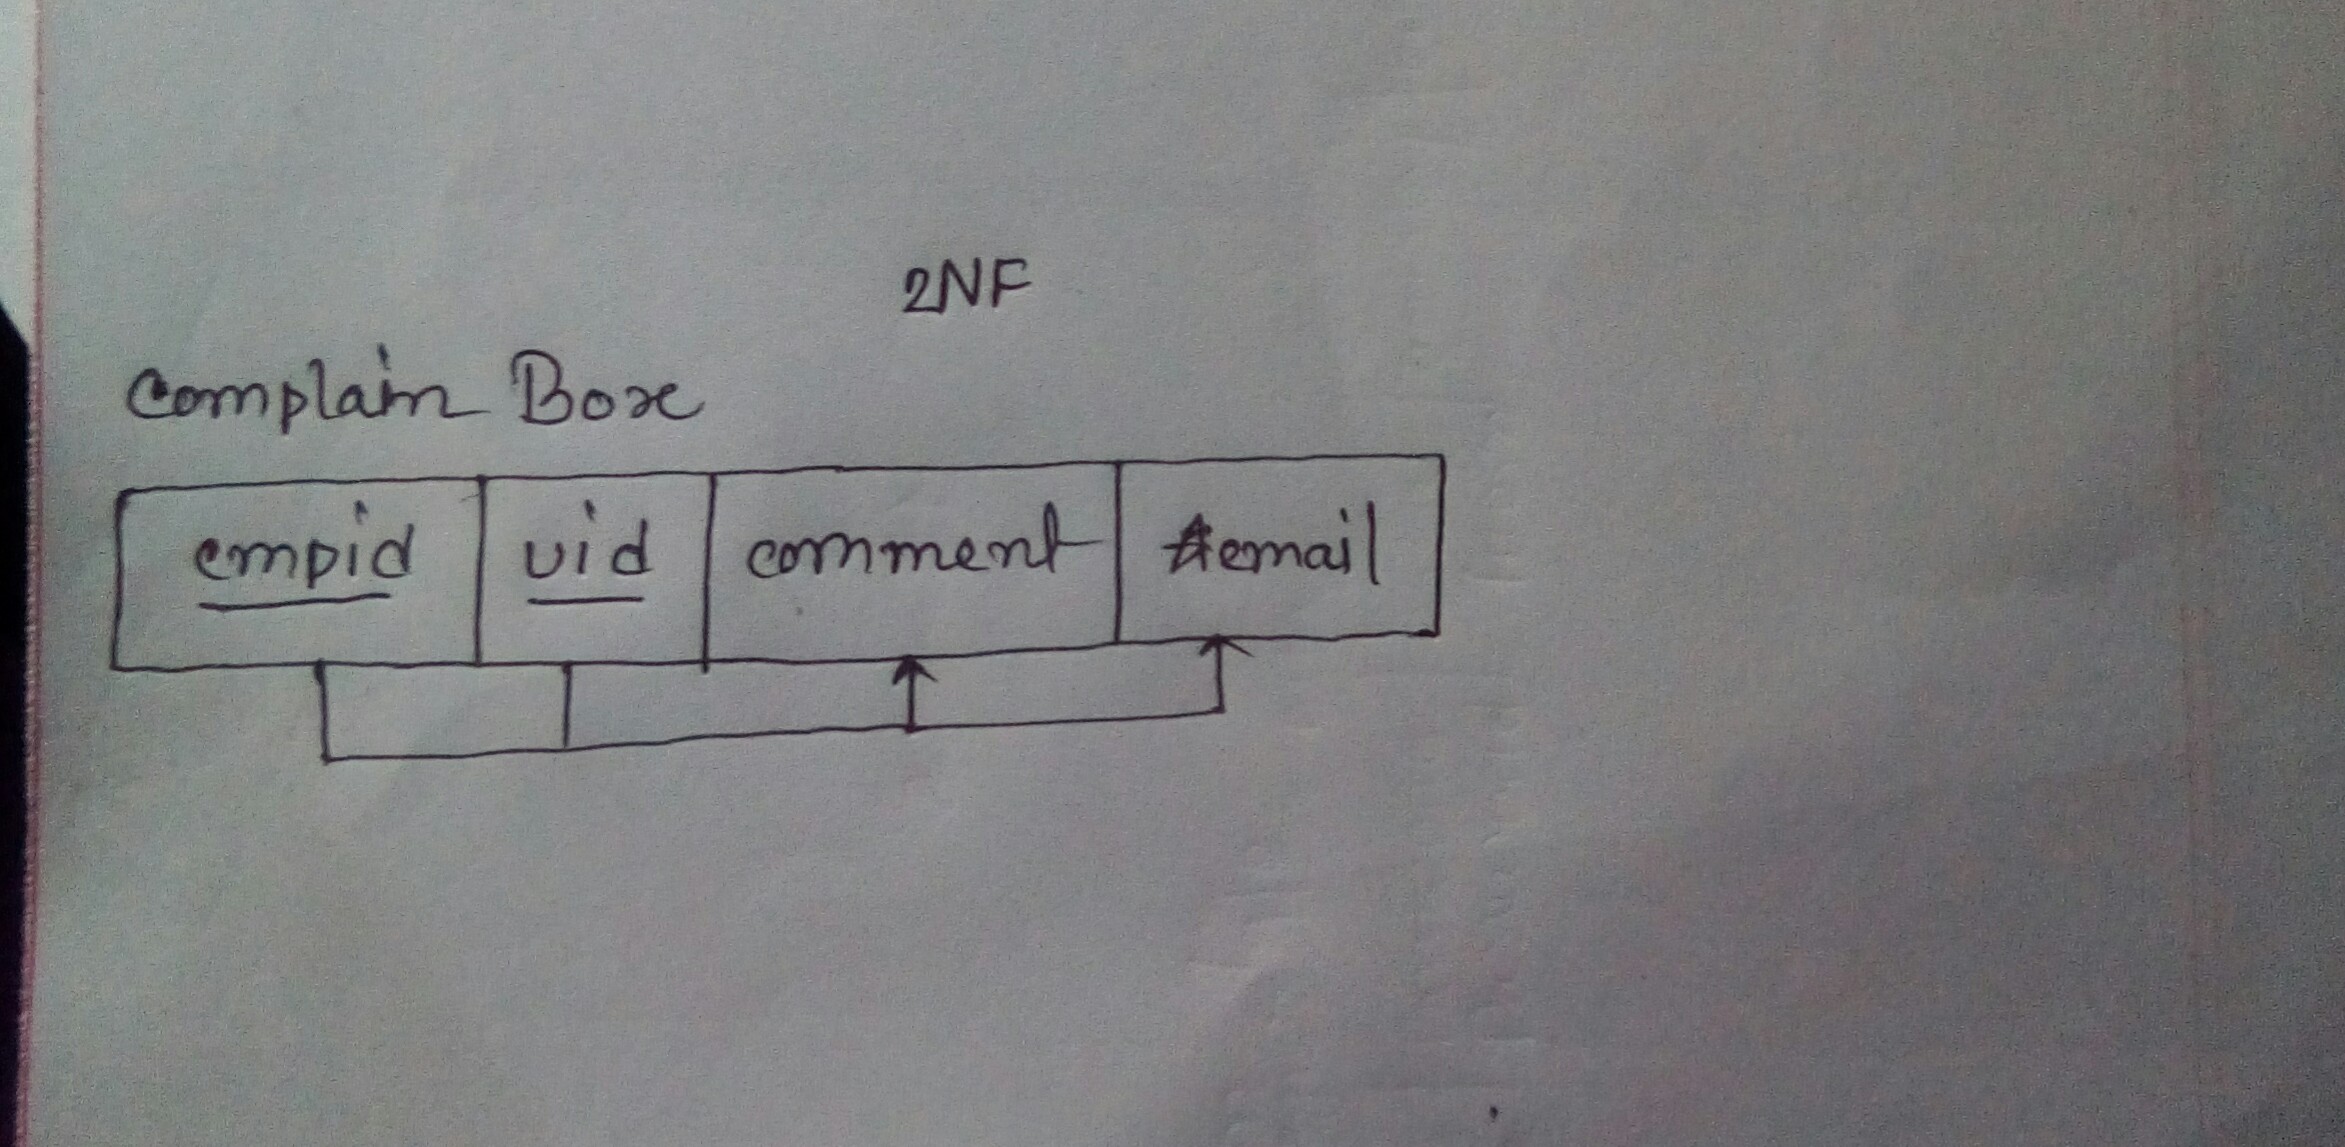 2NF
Complain Box
empid uid comment email